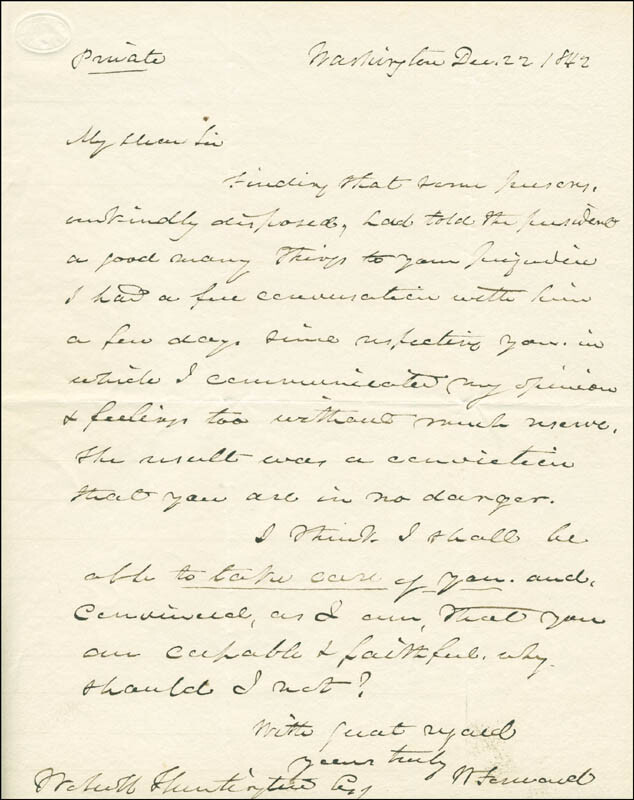 Private Washington Dec. 22 1842
My dear Sir
Finding that some persons,
unkindly disposed, had told the president
a good many things to your prejudice
I had a free conversation with him
a few days since respecting you. in
which I communicated my opinion
& feelings too without much reserve.
The result was a conviction
that you are in no danger.
I think I shall be
able to take care of you. and,
convinced, as I am, that you
are capable & faithful. why
should I not?
With great regard
yours truly
W Forward
Huntington Esq